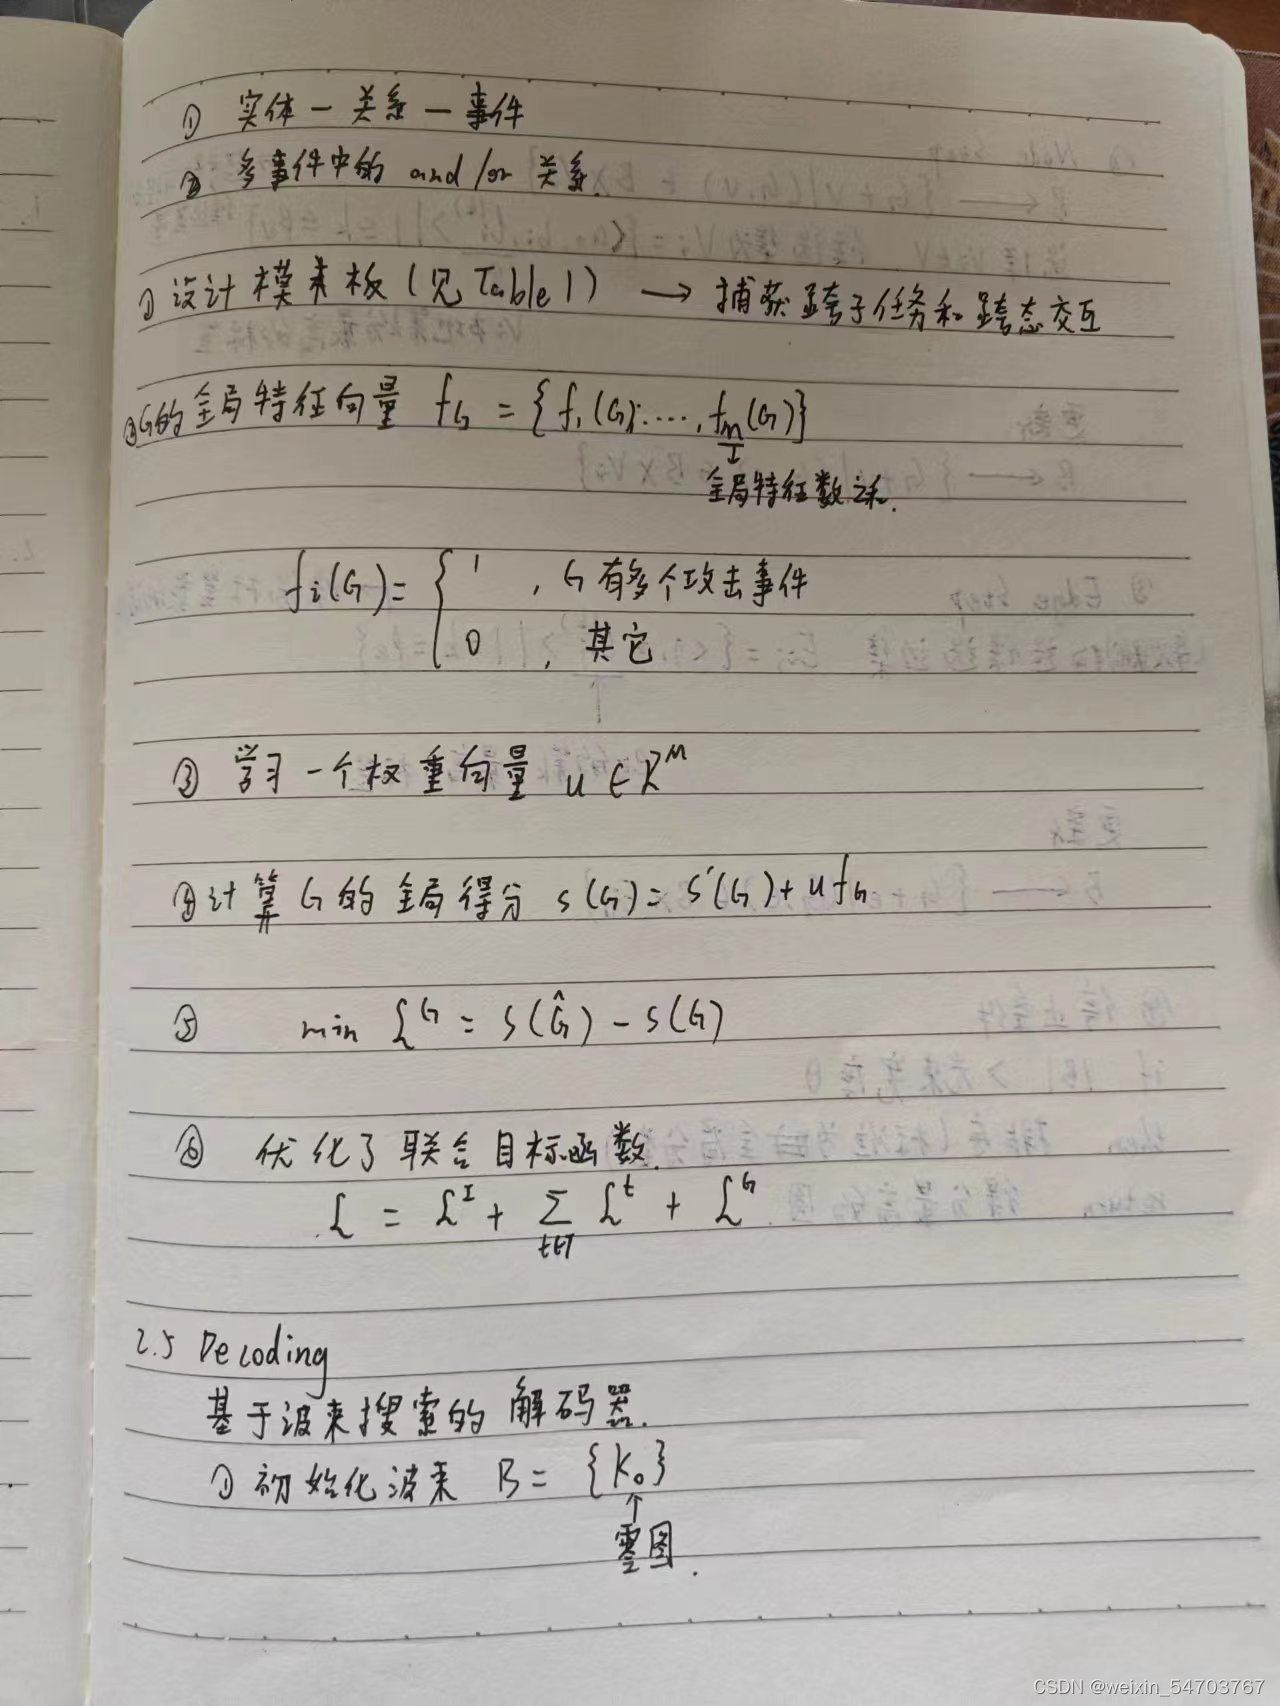 ① 实体 — 关系 — 事件
② 多事件中的 and/or 关系.
① 设计模板(见Table 1) → 捕获跨子任务和跨态交互
② G的全局特征向量 fG = {f1(G); ...., fm(G)}
全局特征数之和.
fi(G) = { 1 , G有多个攻击事件
0 , 其它
③ 学习一个权重向量 u ∈ R^M
④ 计算 G 的全局得分 s(G) = s'(G) + u fG
⑤ min L^G = S(Ĝ) - S(G)
⑥ 优化了联合目标函数.
L = L^I + Σ L^t + L^G
t∈T
2.5 Decoding
基于波束搜索的解码器.
① 初始化波束 B = {K0}
↑
零图.
CSDN @weixin_54703767